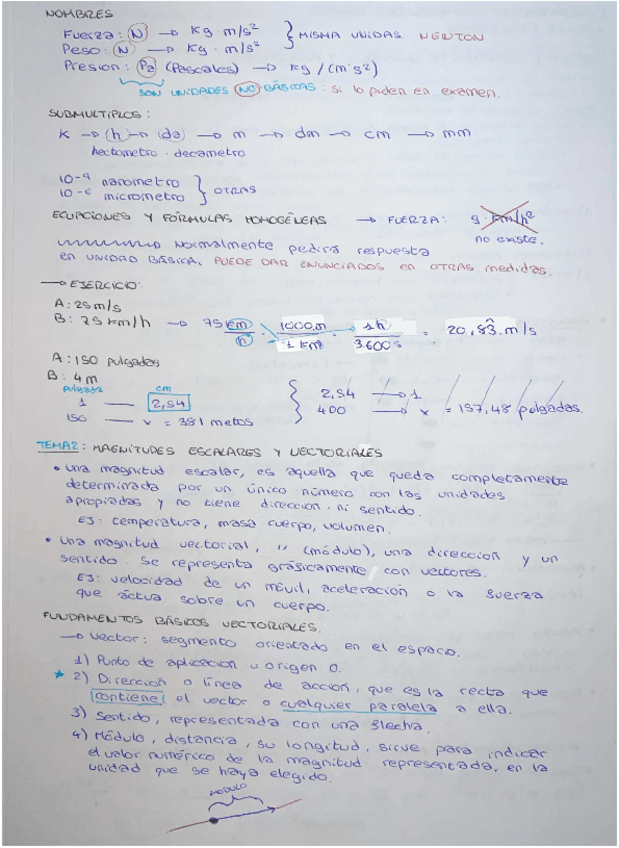 NOMBRES
Fuerza: N → Kg · m/s² } MISMA UNIDAD NEWTON
Peso: N → Kg · m/s²
Presion: Pa (Pascales) → Kg / (m · s²)
SON UNIDADES NO BÁSICAS: si lo piden en examen.
SUBMULTIPLOS:
K → h → da → m → dm → cm → mm
hectometro · decametro
10⁻⁹ nanometro } OTRAS
10⁻⁶ micrometro
ECUACIONES Y FÓRMULAS HOMOGÉNEAS → FUERZA: g · km/h²
no existe.
Normalmente pedira respuesta
en UNIDAD BÁSICA. PUEDE DAR ENUNCIADOS en OTRAS medidas.
→ EJERCICIO:
A: 25 m/s
B: 75 km/h → 75 km/h · 1000 m / 1 km · 1 h / 3.600 s = 20,83 m/s
A: 150 pulgadas
B: 4 m
pulgada cm
1 — 2,54
150 — x = 381 metos
2,54 → 1
400 → x = 157,48 pulgadas.
TEMA2: MAGNITUDES ESCALARES Y VECTORIALES
• Una magnitud escalar, es aquella que queda completamente
determinada por un único número con las unidades
apropiadas y no tiene direccion · ni sentido.
EJ: temperatura, masa cuerpo, volumen.
• Una magnitud vectorial, " (módulo), una direccion y un
sentido. Se representa gráficamente con vectores.
EJ: velocidad de un móvil, aceleración o la fuerza
que áctua sobre un cuerpo.
FUNDAMENTOS BÁSICOS VECTORIALES.
→ Vector: segmento orientado en el espacio.
1) Punto de aplicacion u origen O.
* 2) Dirección o línea de acción, que es la recta que
contiene el vector o cualquier paralela a ella.
3) Sentido, representada con una flecha.
4) Módulo, distancia, su longitud, sirve para indicar
el valor numérico de la magnitud representada, en la
unidad que se haya elegido.
MODULO